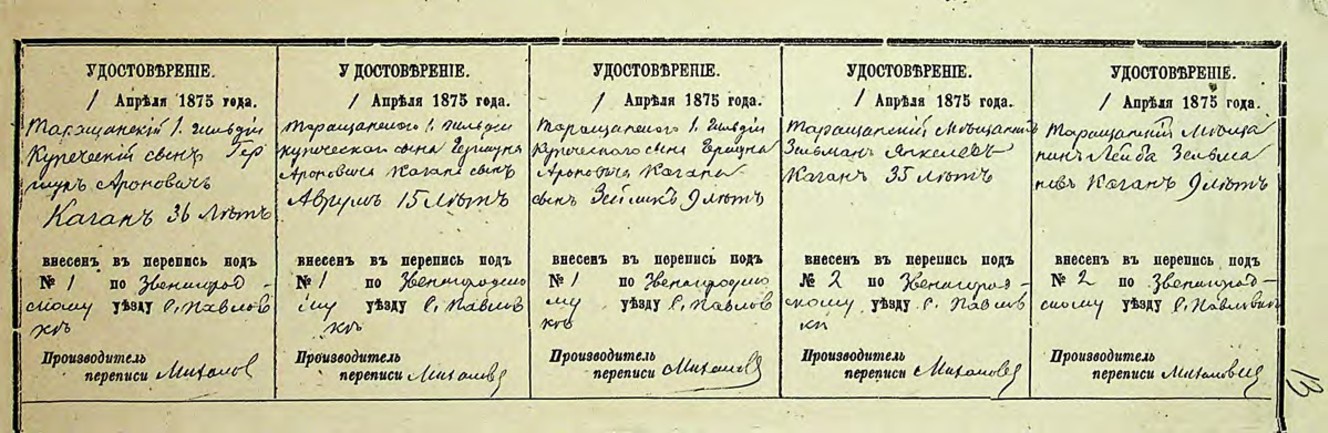 УДОСТОВѢРЕНІЕ.
1 Апрѣля 1875 года.
Таращанскій 1. гильдіи
Купеческій сынъ Гер
шунъ Ароновичъ
Каганъ 36 лѣтъ
внесенъ въ перепись подъ
№ 1 по Звенигород-
скому уѣзду с. Павлов
кѣ
Производитель
переписи
УДОСТОВѢРЕНІЕ.
1 Апрѣля 1875 года.
Таращанского 1. гильдіи
купеческого сына Гершуна
Ароновича Кагана сынъ
Аврумъ 15 лѣтъ
внесенъ въ перепись подъ
№ 1 по Звенигородско
му уѣзду с. Павлов
кѣ
Производитель
переписи
УДОСТОВѢРЕНІЕ.
1 Апрѣля 1875 года.
Таращанского 1. гильдіи
Купеческого сына Гершуна
Ароновича Кагана
сынъ Зейликъ 9 лѣтъ
внесенъ въ перепись подъ
№ 1 по Звенигородско
му уѣзду с. Павлов
кѣ
Производитель
переписи
УДОСТОВѢРЕНІЕ.
1 Апрѣля 1875 года.
Таращанскій мѣщанинъ
Зельманъ Янкелевъ
Каганъ 35 лѣтъ
внесенъ въ перепись подъ
№ 2 по Звенигород-
скому уѣзду с. Павлов
ки
Производитель
переписи
УДОСТОВѢРЕНІЕ.
1 Апрѣля 1875 года.
Таращанскій мѣща
нинъ Лейба Зельма
новъ Каганъ 9 лѣтъ
внесенъ въ перепись подъ
№ 2 по Звенигород-
скому уѣзду с.
Производитель
переписи
13